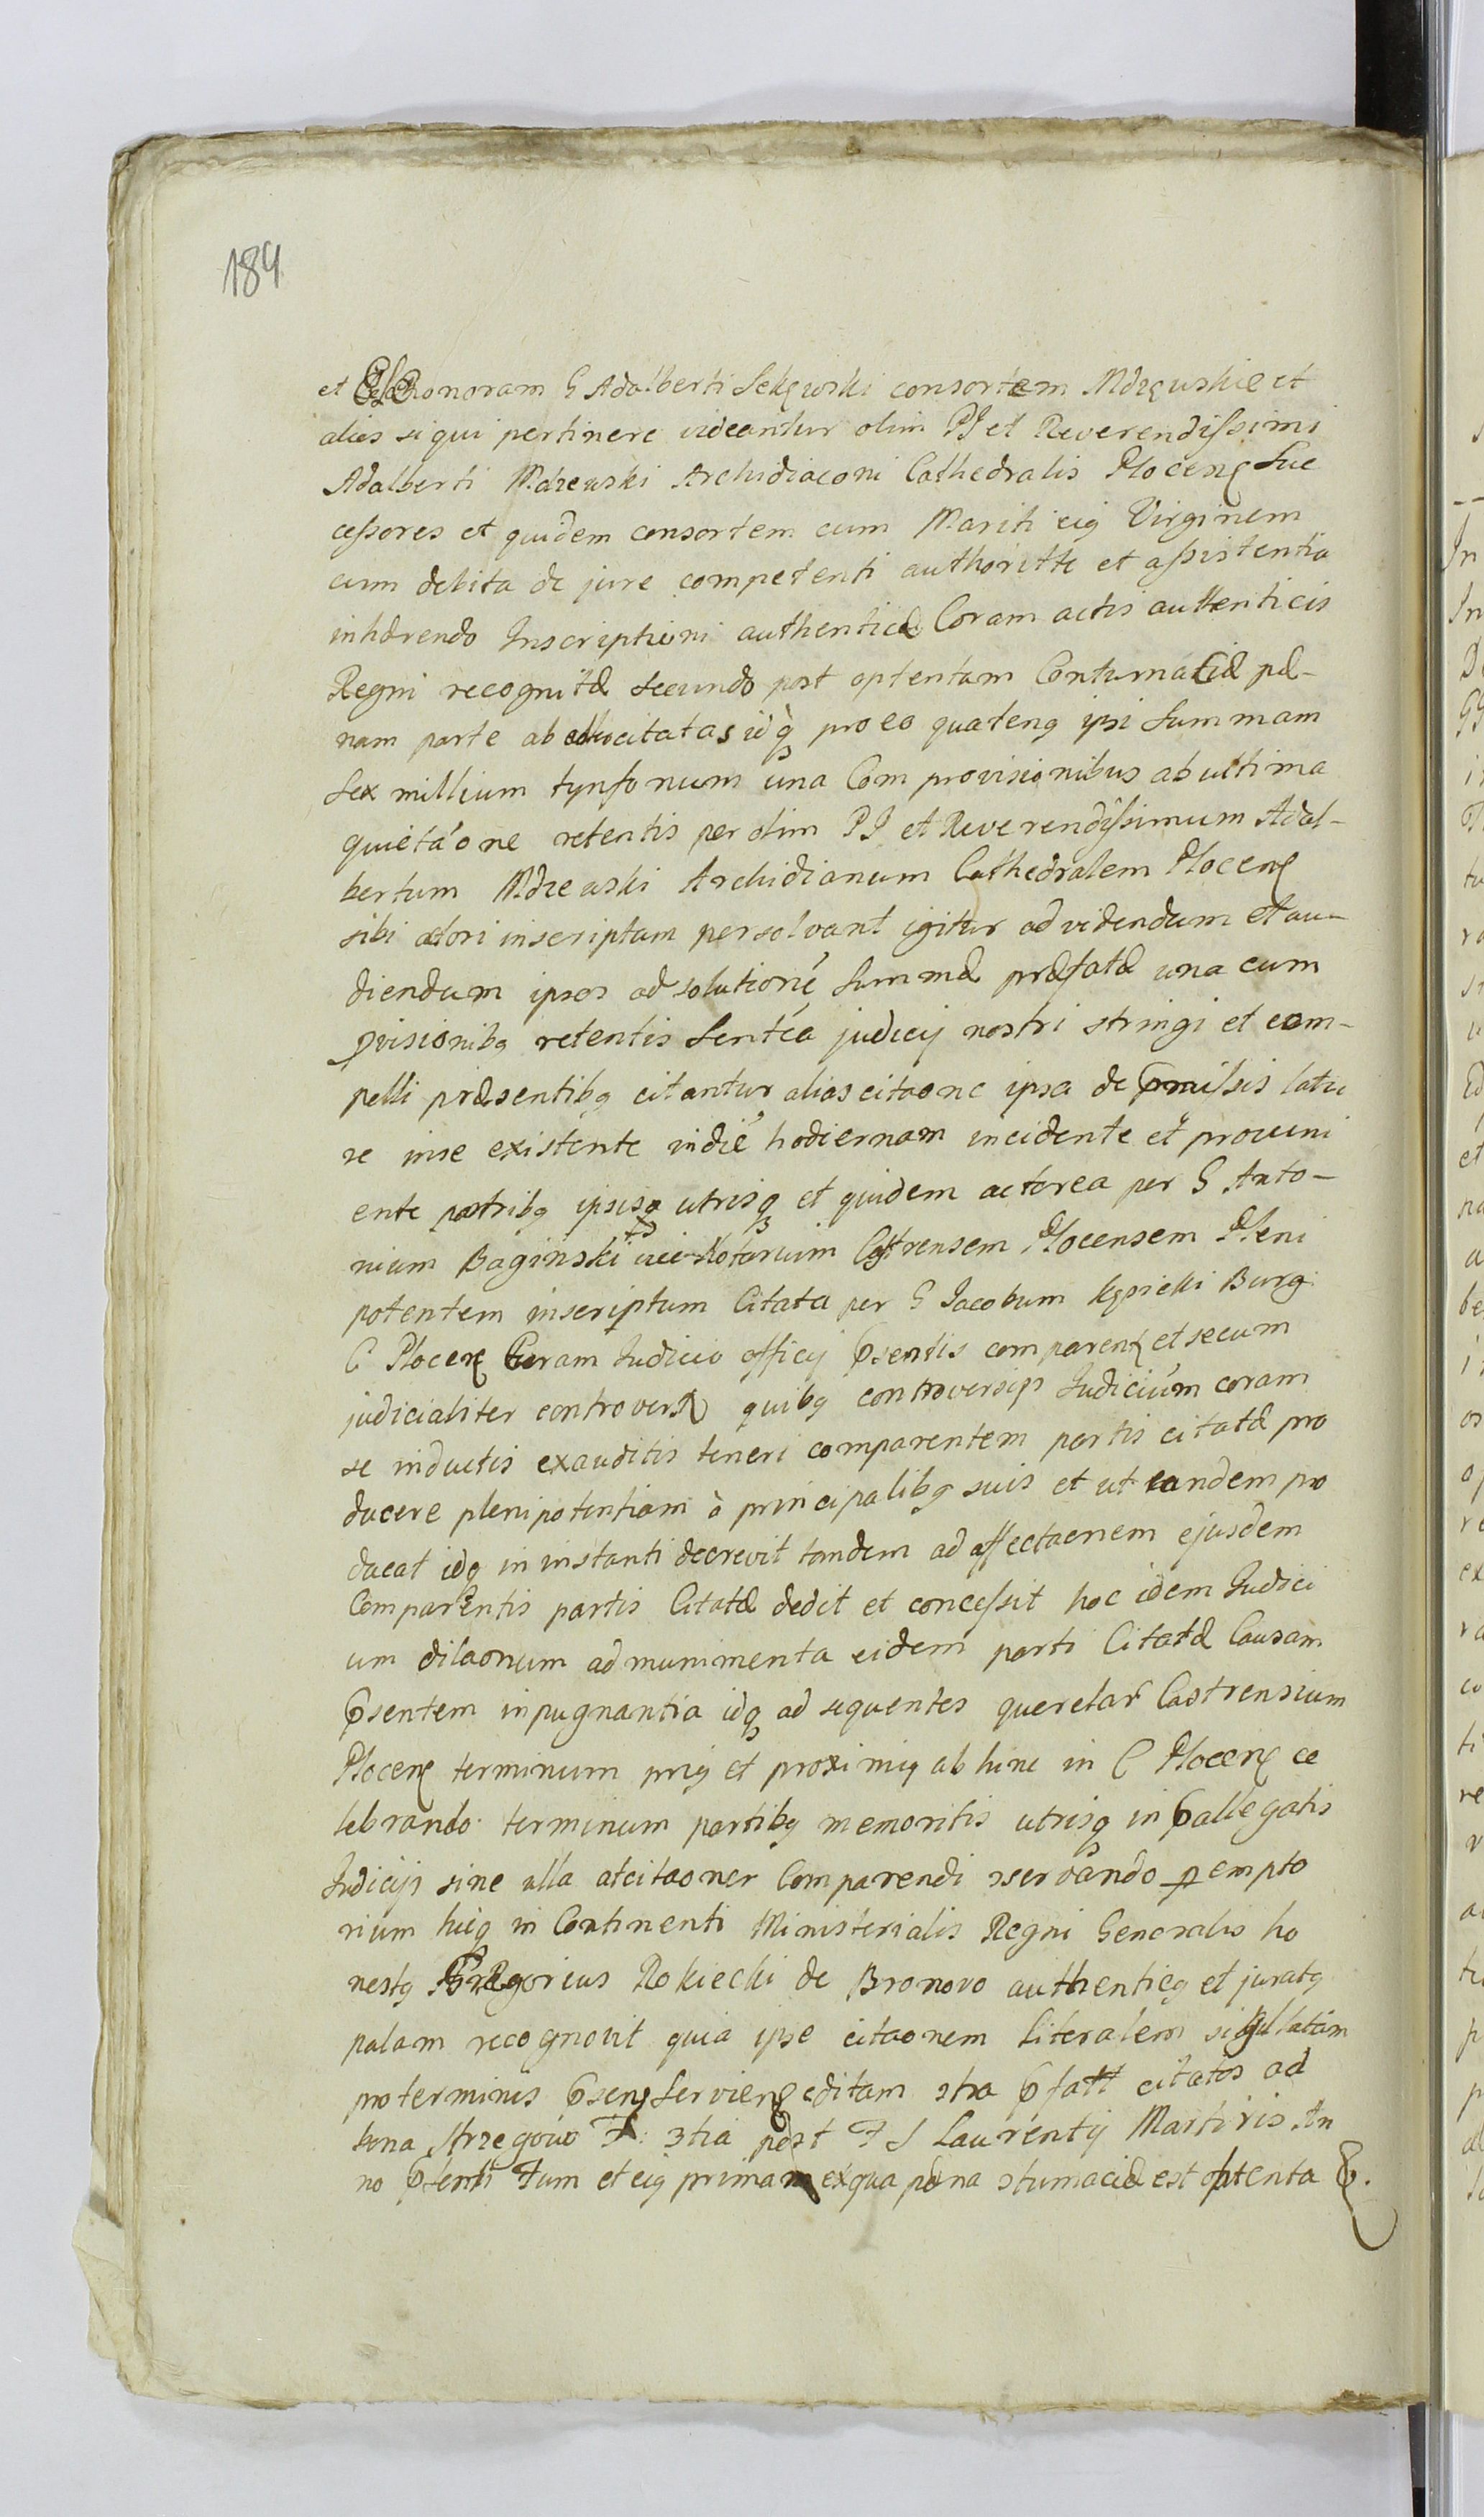 184
et Eleonoram G Adalberti Sekęwski consortem Mdzęwskie et
alios si qui pertinere videantur olim PJ et Reverendissimi
Adalberti Mdzewski Archidiaconi Cathedralis Plocenς Suc
cessores et quidem consortem cum Mariti eiꝯ Virginem
cum debita de jure competenti authoritte et assistentia
inhærendo Inscriptioni authenticæ Coram actis authenticis
Regni recognitæ Secundo post optentam Contumaciæ pæ-
nam parte ab citatas idꝗ pro eo quatenꝯ ipsi Summam
Sex millium tynfonum una Com provisionibus ab ultima
quietáone retentis per olim PJ et Reverendissimum Adal-
bertum Mdzewski Archidianum Cathedralem Plocenς
sibi actori inscriptam persolvant igitur ad videndum et au-
diendum ipsos ad solutionē Summæ præfatæ una cum
ꝓvisionibꝯ retentis Sentéa judicij nostri stringi et com-
pelli præsentibꝯ citantur alias citaone ipsa de pmissis latiu
re inse existente indiē hodiernam incidente et proveni
ente partribꝯ ipsisꝗ utrisꝗ et quidem actorea per G Anto-
nium Baginski vice Notarium Castrensem Plocensem Pleni
potentem inscriptum Citata per G Jacobum Kęsicki Burg:
C Plocenς Coram Judicio officij psentis comparenς et secum
judicialiter controver quibꝯ controversijs Judicium coram
se inductis exauditis teneri comparentem partis citatæ pro
ducere plenipotentiam à principalibꝯ suis et ut eandem pro
ducat idꝗ in instanti decrevit tandem ad affectaonem ejusdem
Comparentis partis Citatæ dedit et concessit hoc idem Judici
um dilaonum ad munimenta eidem parti Citatæ Causam
psentem inpugnantia idꝗ ad sequentes querelar Castrensium
Plocenς terminum priꝯ et proximiꝯ ab hinc in C Plocenς ce
lebrando terminum partibꝯ memoritis utrisꝗ in pallegatis
Judicijs sine ulla atcitaoner Comparendi ɔservando ꝑempto
rium huiꝯ in Continenti Ministerialis Regni Generalis ho
nestꝯ Gregorius Rokiecki de Bronovo authenticꝯ et juratꝯ
palam recognovit quia ipse citaonem literalem sigillatim
pro terminis psenς Servienς editam ɔtra pfatt citatos ad
bona Strzegowo F: 3tia post F S Laurentij Martiris An
no psenti Fum et eiꝯ primam exqua pæna ɔtumaciæ est obtenta